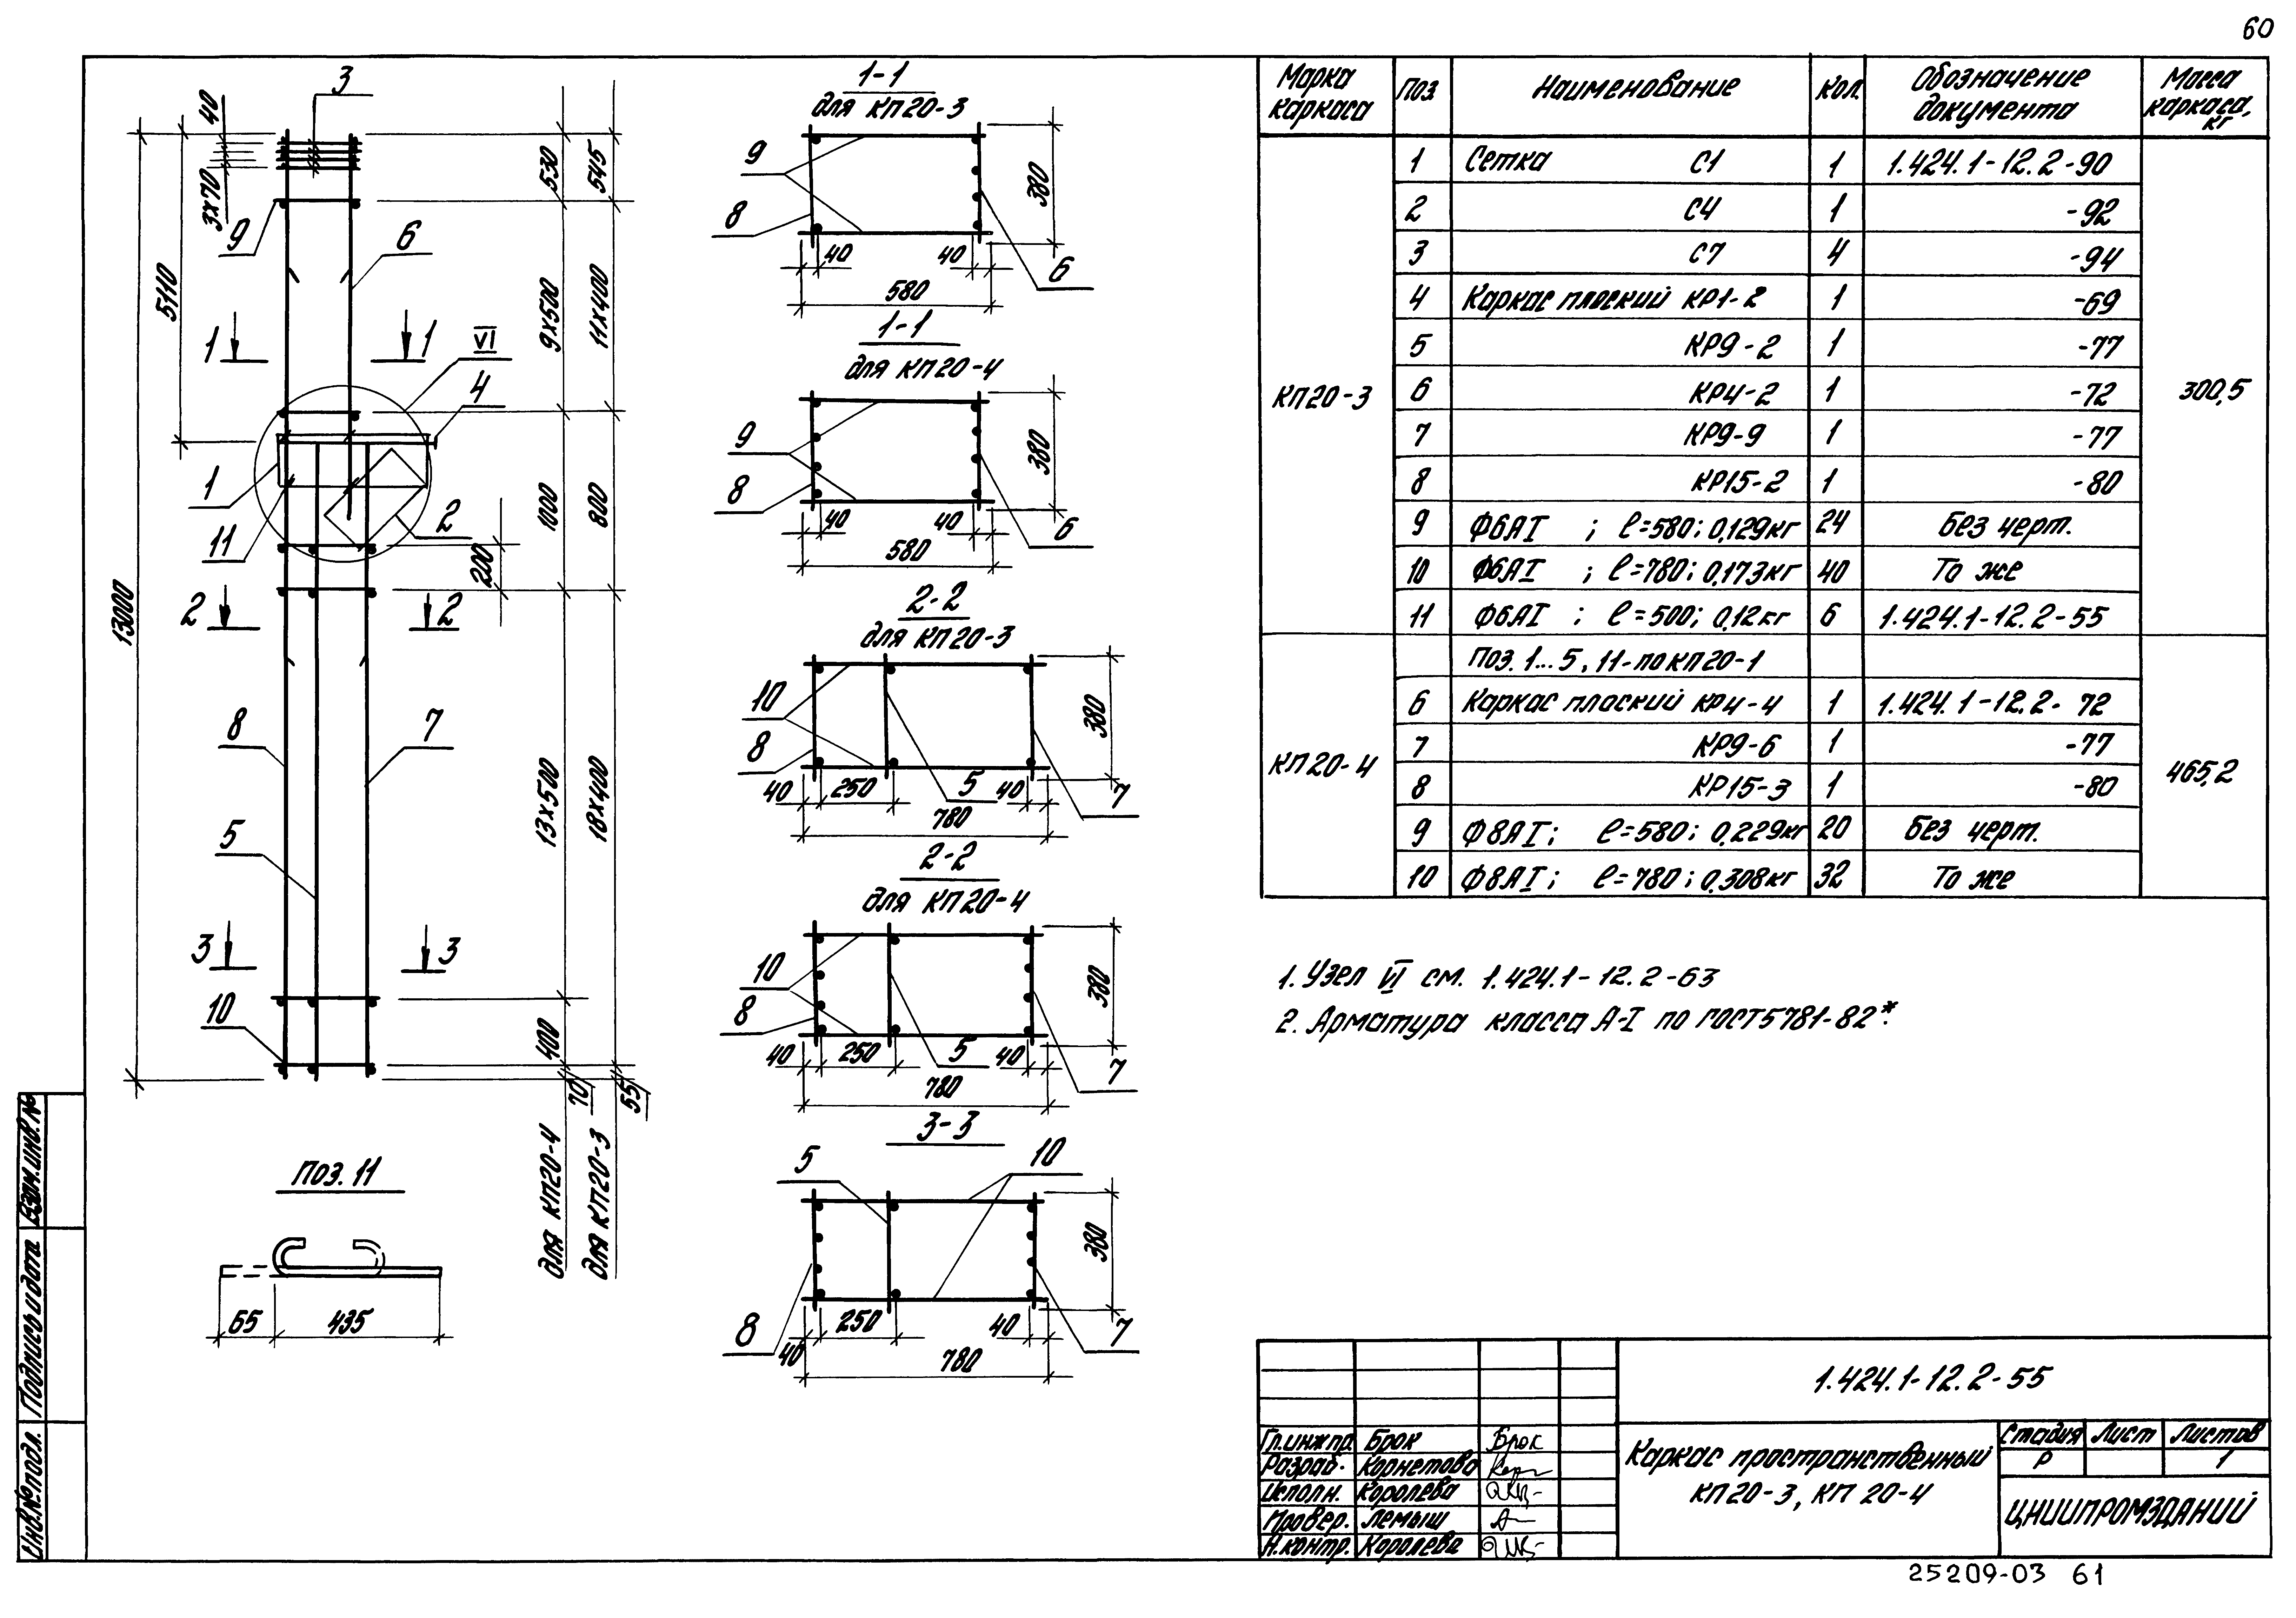 60
3
40
3х70
9
6
5110
1
1
VI
4
1
11
2
200
13000
2
2
8
7
5
3
3
10
530
545
9х500
11х400
1000
800
13х500
18х400
400
70
55
для КП20-4
для КП20-3
Поз. 11
65
435
1-1
для КП20-3
9
8
40
40
580
380
6
1-1
для КП20-4
9
8
40
40
580
380
6
2-2
для КП20-3
10
8
40
250
5
40
7
780
380
2-2
для КП20-4
10
8
40
250
5
40
7
780
380
3-3
5
10
8
40
250
40
7
780
380
Марка каркаса Поз Наименование Кол. Обозначение документа Масса каркаса, кг
КП20-3 300,5
1 Сетка С1 1 1.424.1-12.2-90
2 С4 1 -92
3 С7 4 -94
4 Каркас плоский КР1-2 1 -69
5 КР9-2 1 -77
6 КР4-2 1 -72
7 КР9-9 1 -77
8 КР15-2 1 -80
9 Ф6АI ; ℓ=580; 0,129кг 24 Без черт.
10 Ф6АI ; ℓ=780; 0,173кг 40 То же
11 Ф6АI ; ℓ=500; 0,12кг 6 1.424.1-12.2-55
КП20-4 465,2
Поз. 1...5, 11-по КП20-1
6 Каркас плоский КР4-4 1 1.424.1-12.2-72
7 КР9-6 1 -77
8 КР15-3 1 -80
9 Ф8АI; ℓ=580; 0,229кг 20 Без черт.
10 Ф8АI; ℓ=780; 0,308кг 32 То же
1. Узел VI см. 1.424.1-12.2-63
2. Арматура класса А-I по ГОСТ5781-82*.
1.424.1-12.2-55
Гл.инж.пр. Брок Брок
Разраб. Корнетова
Исполн. Королева
Провер. Лемыш
Н.контр. Королева
Каркас пространственный
КП20-3, КП 20-4
Стадия Лист Листов
Р 1
ЦНИИПРОМЗДАНИЙ
Взам.инв.№
Подпись и дата
Инв.№ подл.
25209-03 61